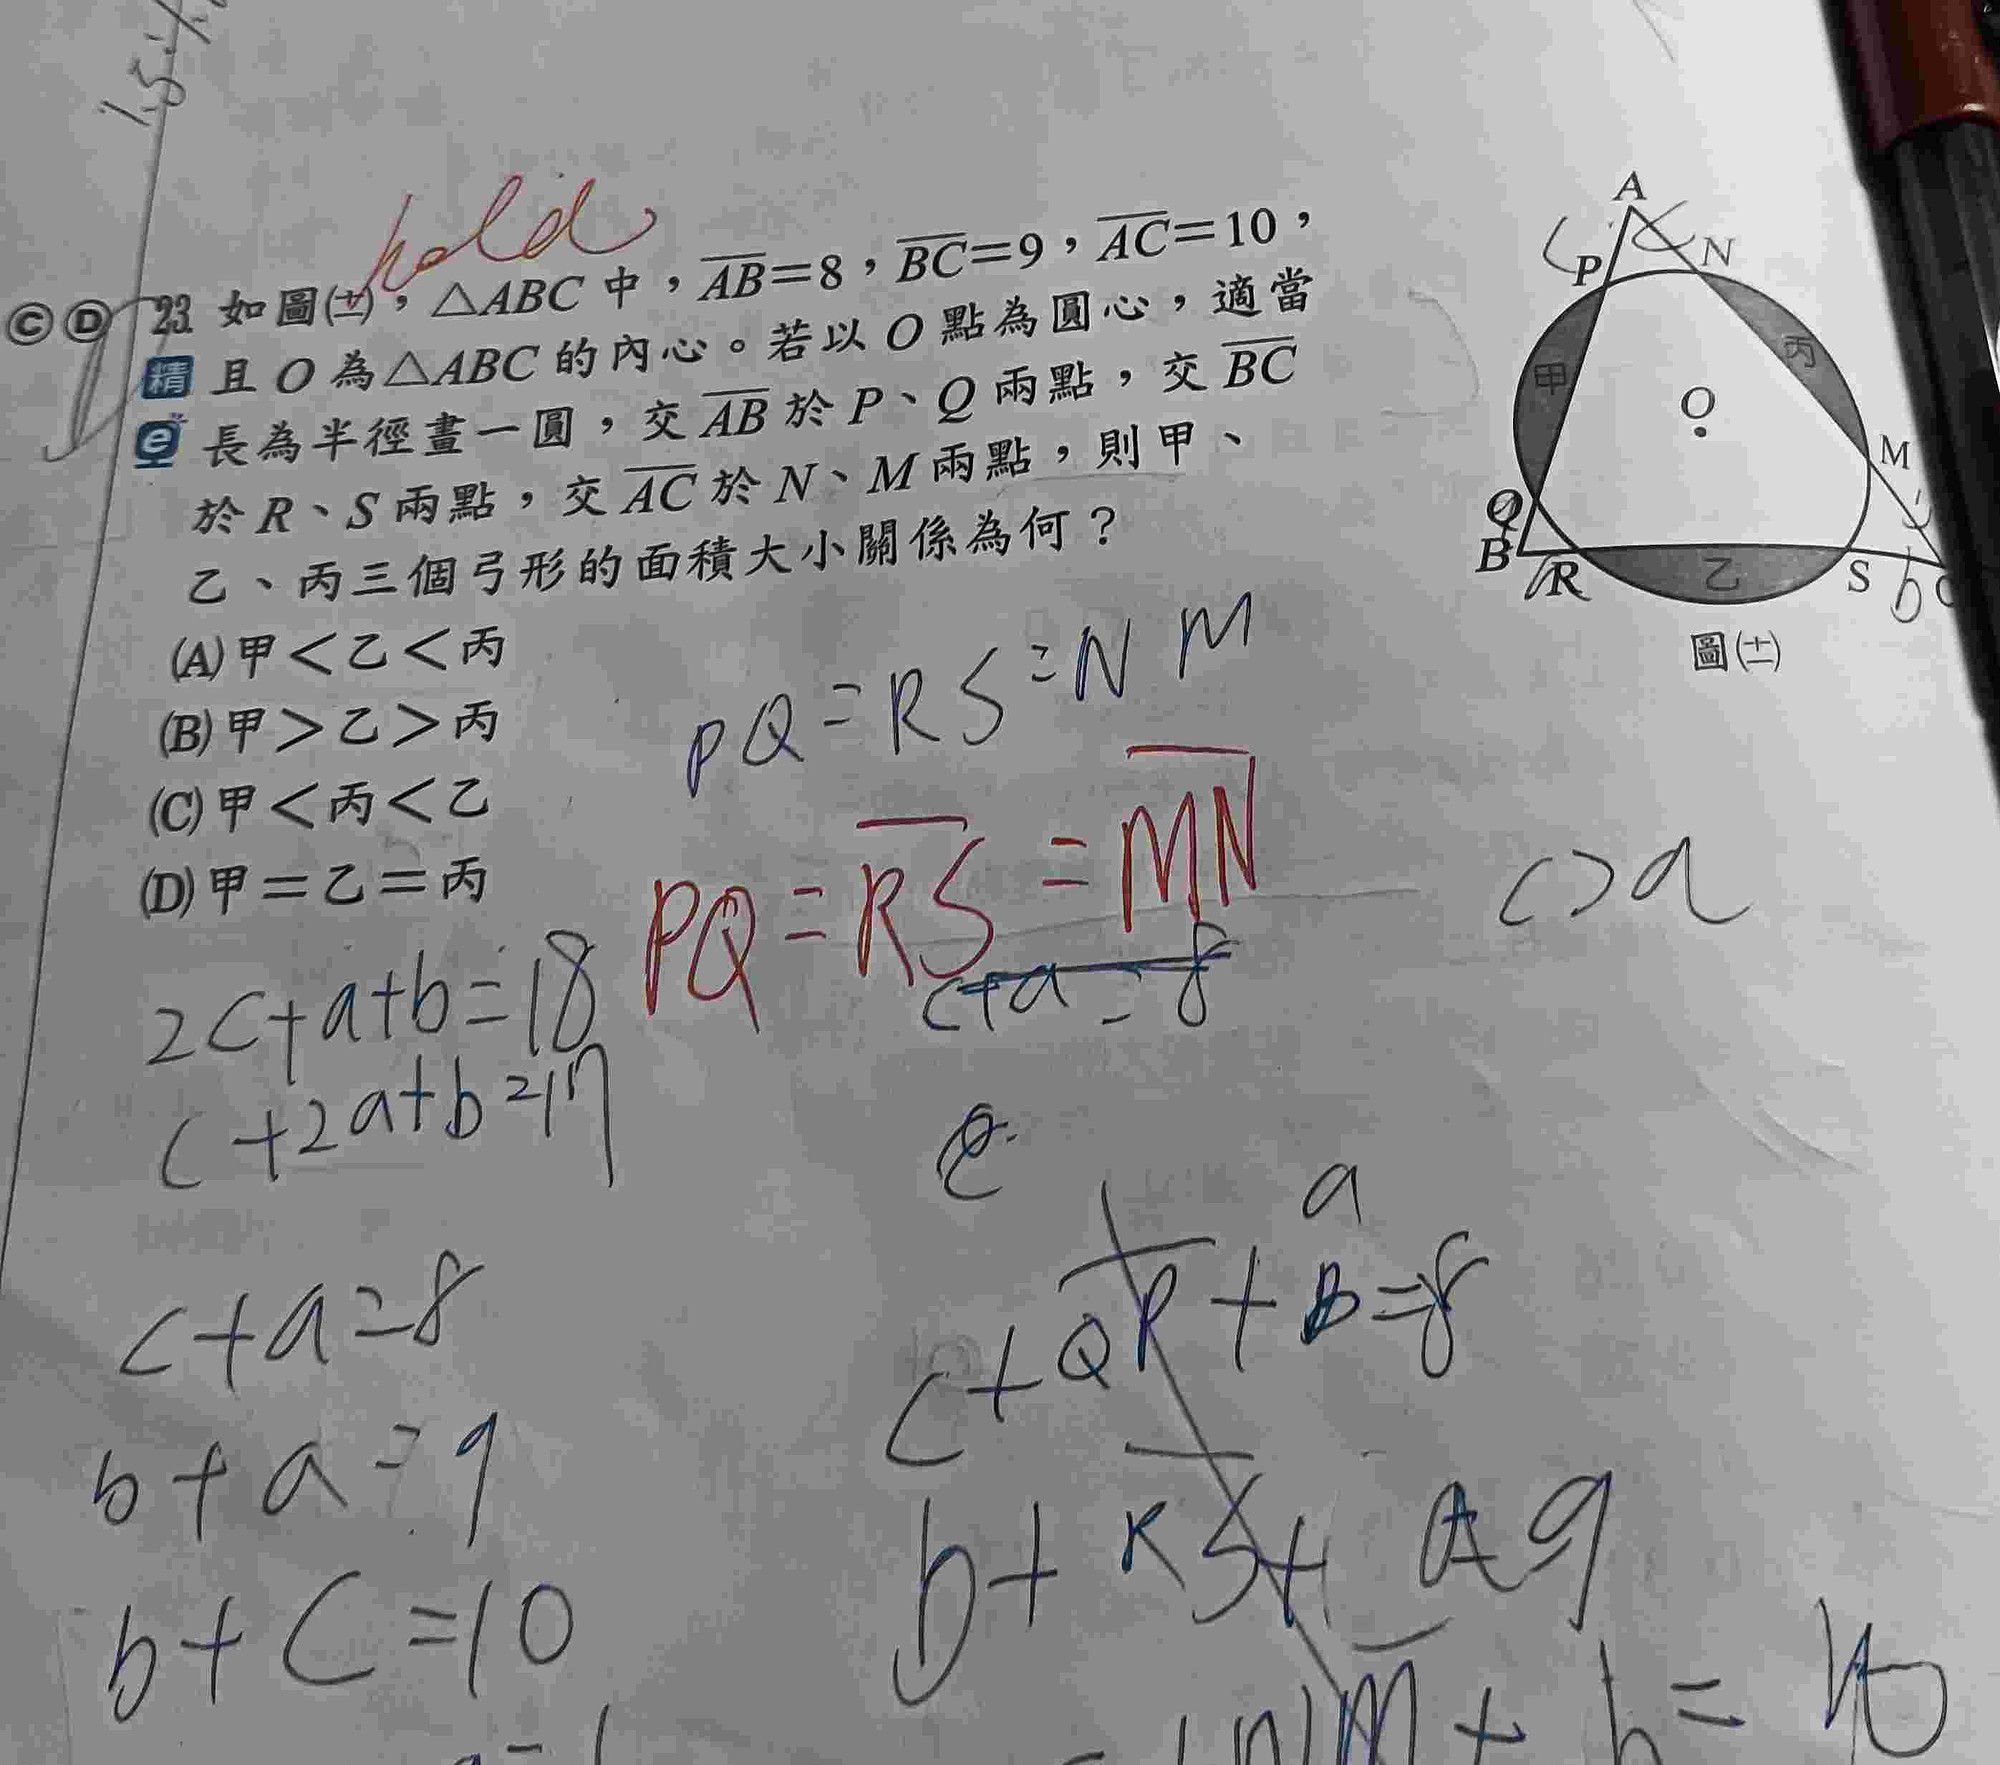 1.5
hold
Ⓒ Ⓓ 23. 如圖(十二),△ABC 中,AB=8,BC=9,AC=10,
精 且 O 為△ABC 的內心。若以 O 點為圓心,適當
e 長為半徑畫一圓,交 AB 於 P、Q 兩點,交 BC
於 R、S 兩點,交 AC 於 N、M 兩點,則甲、
乙、丙三個弓形的面積大小關係為何?
(A) 甲<乙<丙
(B) 甲>乙>丙
(C) 甲<丙<乙
(D) 甲=乙=丙
A
c c
P N
甲 丙
O
M
Q
B R 乙 S b C
圖(十二)
PQ=RS=NM
PQ=RS=MN
c+a=8
c>a
2c+a+b=18
c+2a+b=17
c+a=8
b+a=9
b+c=10
a
c+QP+B=8
b+RS+a 9
NM+b=10